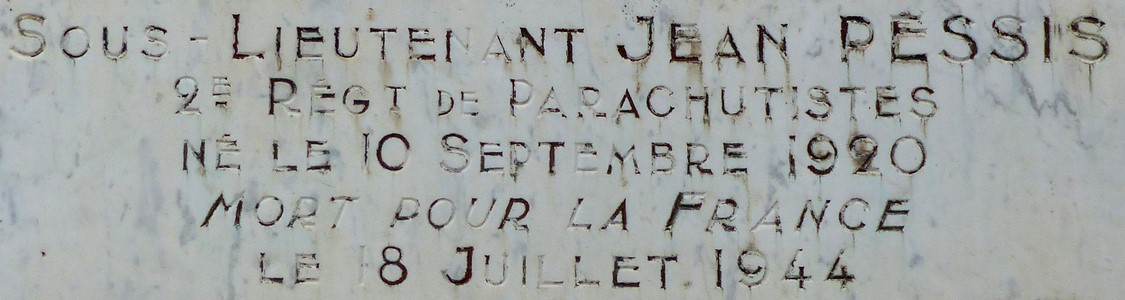 SOUS-LIEUTENANT JEAN PESSIS
2E RÉGT DE PARACHUTISTES
NÉ LE 10 SEPTEMBRE 1920
MORT POUR LA FRANCE
LE 18 JUILLET 1944